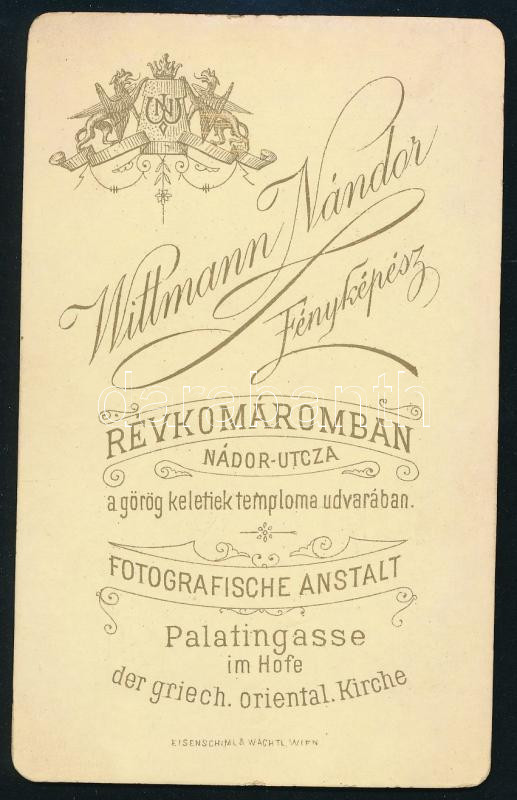 Wittmann Nándor
Fényképész
RÉVKOMÁROMBAN
NÁDOR-UTCZA
a görög keletiek temploma udvarában.
FOTOGRAFISCHE ANSTALT
Palatingasse
im Hofe
der griech. oriental. Kirche
EISENSCHIML & WACHTL, WIEN
darabanth